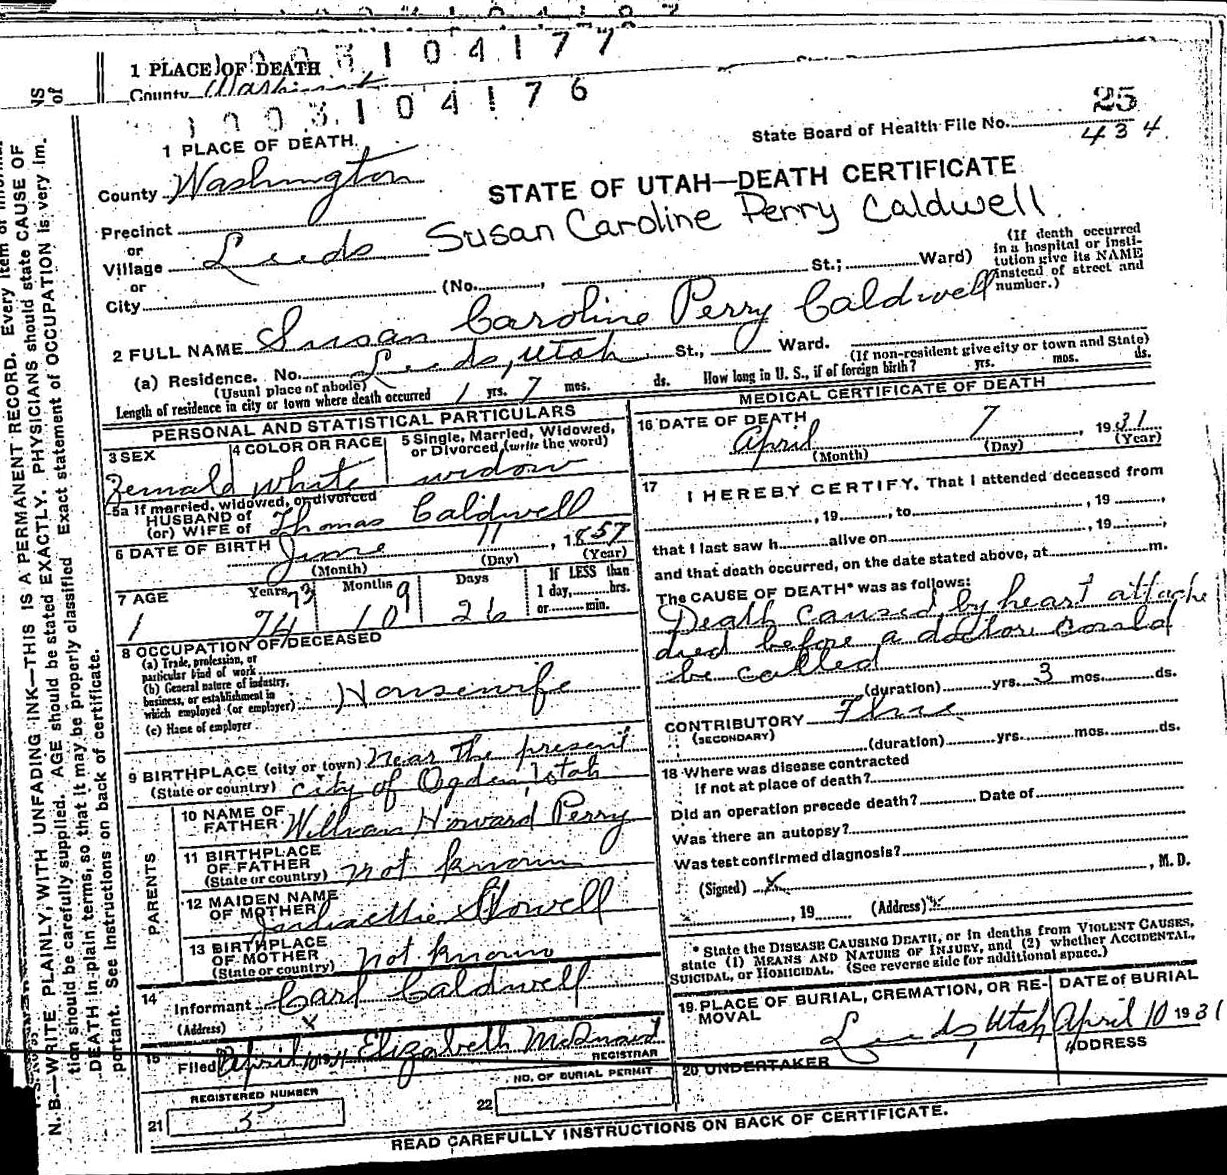 1003104177
1 PLACE OF DEATH
County Washington
1003104176
25
State Board of Health File No. 434.
1 PLACE OF DEATH.
County Washington
STATE OF UTAH—DEATH CERTIFICATE
Susan Caroline Perry Caldwell.
Precinct
or
Village Leeds
or
City (No. , St.; Ward)
(If death occurred
in a hospital or insti-
tution give its NAME
instead of street and
number.)
2 FULL NAME Susan Caroline Perry Caldwell
(a) Residence. No. Leeds, Utah St., Ward.
(Usual place of abode) (If non-resident give city or town and State)
Length of residence in city or town where death occurred 1 yrs. 7 mos. ds. How long in U. S., if of foreign birth? yrs. mos. ds.
PERSONAL AND STATISTICAL PARTICULARS
3 SEX
4 COLOR OR RACE
5 Single, Married, Widowed,
or Divorced (write the word)
Femald white widow
5a If married, widowed, or divorced
HUSBAND of
(or) WIFE of Thomas Caldwell
6 DATE OF BIRTH June 11, 1857
(Month) (Day) (Year)
7 AGE Years Months Days If LESS than
73 9 1 day, hrs.
74 10 26 or min.
8 OCCUPATION OF DECEASED
(a) Trade, profession, or
particular kind of work
(b) General nature of industry,
business, or establishment in
which employed (or employer) Housewife
(c) Name of employer
9 BIRTHPLACE (city or town) near the present
(State or country) city of Ogden, Utah
PARENTS
10 NAME OF
FATHER William Howard Perry
11 BIRTHPLACE
OF FATHER
(State or country) not known
12 MAIDEN NAME
OF MOTHER Stowell
13 BIRTHPLACE
OF MOTHER
(State or country) not known
14
Informant Carl Caldwell
(Address) X
15
Filed April 10 1931 Elizabeth
REGISTRAR
REGISTERED NUMBER
21 5
NO. OF BURIAL PERMIT
22
MEDICAL CERTIFICATE OF DEATH
16 DATE OF DEATH
April 7, 1931
(Month) (Day) (Year)
17 I HEREBY CERTIFY, That I attended deceased from
, 19 , to , 19 ,
that I last saw h alive on , 19 ,
and that death occurred, on the date stated above, at m.
The CAUSE OF DEATH* was as follows:
Death caused by heart attacke
died before a doctor could
be called
(duration) yrs. 3 mos. ds.
CONTRIBUTORY Flue
(SECONDARY)
(duration) yrs. mos. ds.
18 Where was disease contracted
if not at place of death?
Did an operation precede death? Date of
Was there an autopsy?
Was test confirmed diagnosis?
(Signed) X , M. D.
, 19 (Address)
* State the DISEASE CAUSING DEATH, or in deaths from VIOLENT CAUSES,
state (1) MEANS AND NATURE OF INJURY, and (2) whether ACCIDENTAL,
SUICIDAL, or HOMICIDAL. (See reverse side for additional space.)
19 PLACE OF BURIAL, CREMATION, OR RE-
MOVAL
DATE of BURIAL
Leeds Utah April 10 1931
20 UNDERTAKER
ADDRESS
READ CAREFULLY INSTRUCTIONS ON BACK OF CERTIFICATE.
N.B—WRITE PLAINLY, WITH UNFADING INK—THIS IS A PERMANENT RECORD. Every item of informa-
tion should be carefully supplied. AGE should be stated EXACTLY. PHYSICIANS should state CAUSE OF
DEATH in plain terms, so that it may be properly classified. Exact statement of OCCUPATION is very im-
portant. See instructions on back of certificate.